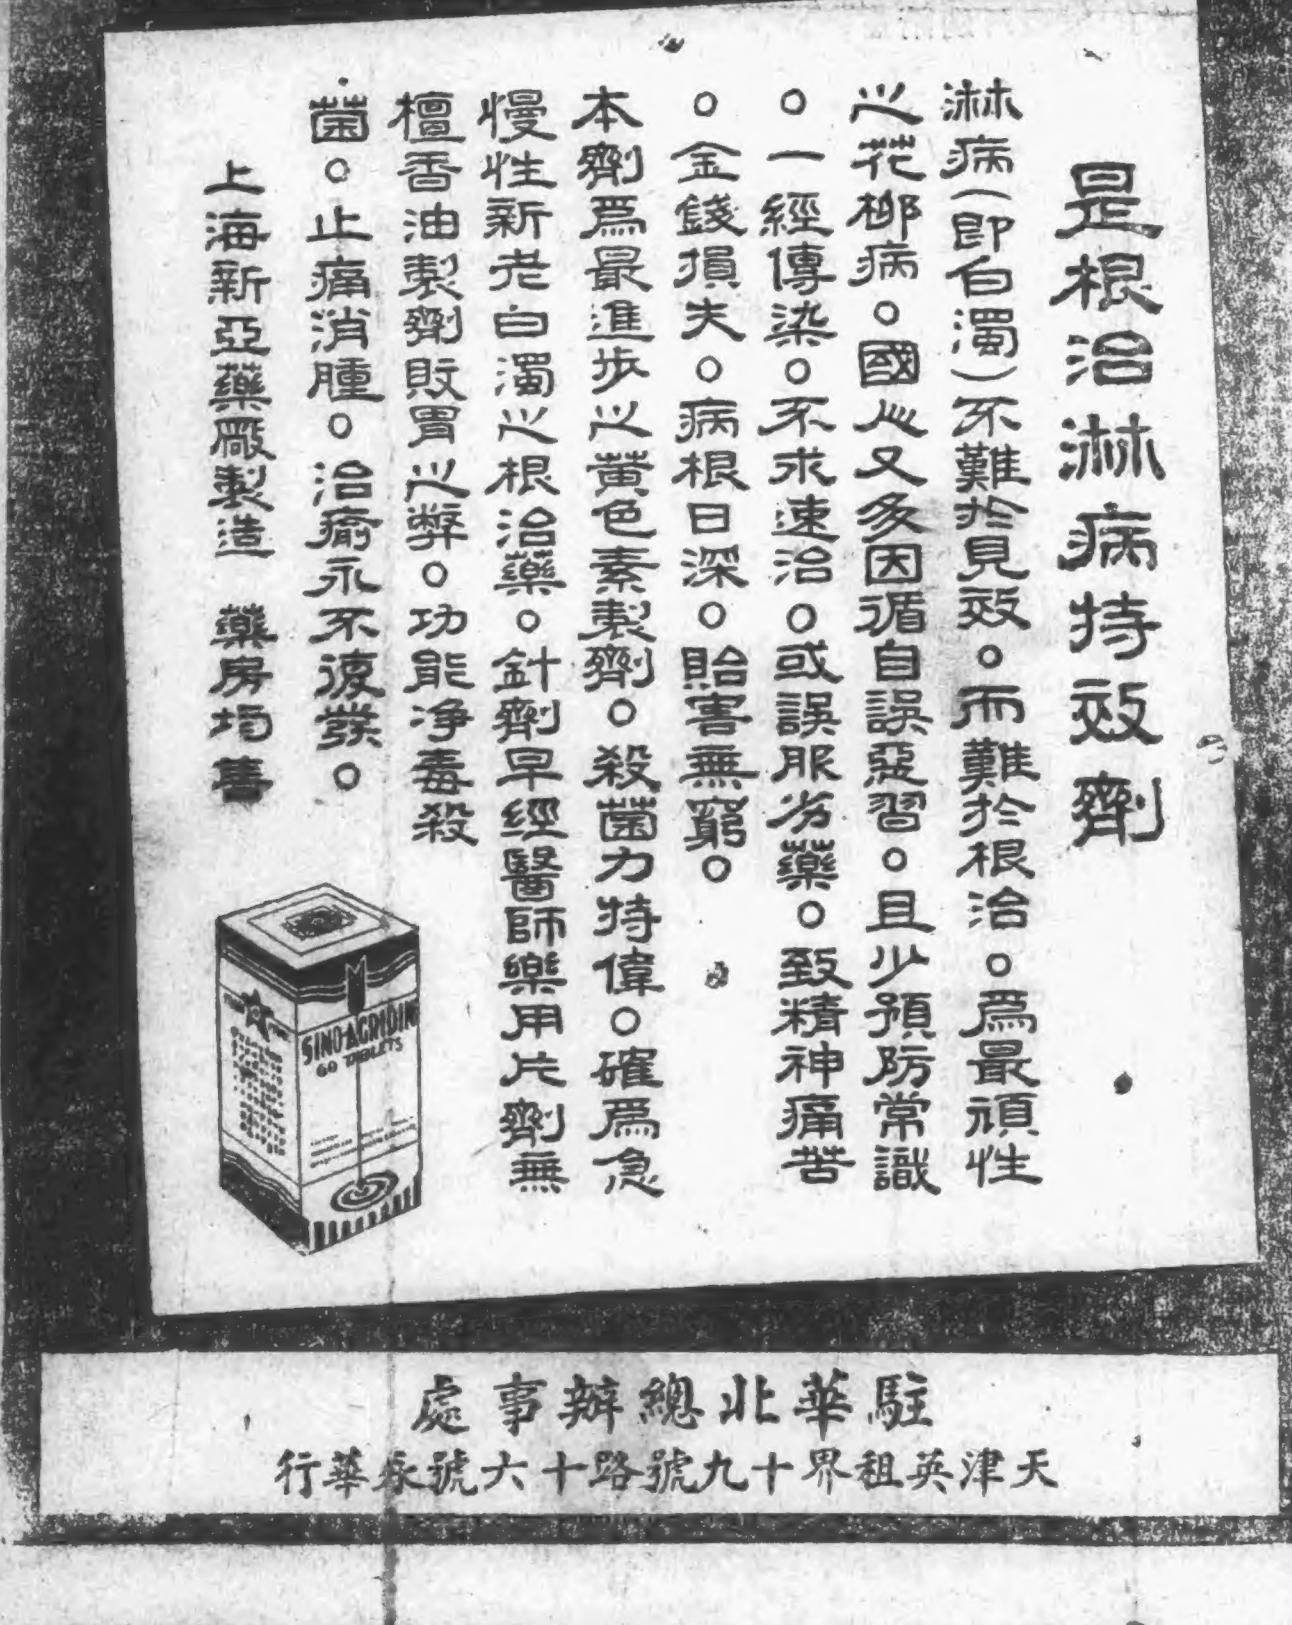 是根治淋病特效劑
淋病(即白濁)不難於見效。而難於根治。爲最頑性
之花柳病。國人又多因循自誤惡習。且少預防常識
。一經傳染。不求速治。或誤服劣藥。致精神痛苦
。金錢損失。病根日深。貽害無窮。
本劑爲最進步之黃色素製劑。殺菌力特偉。確爲急
慢性新老白濁之根治藥。針劑早經醫師樂用片劑無
檀香油製劑敗胃之弊。功能净毒殺
菌。止痛消腫。治瘉永不復發。
上海新亞藥廠製造 藥房均售
SINO-AGRIDIN
60 TABLETS
駐華北總辦事處
天津英租界十九號路十六號永華行